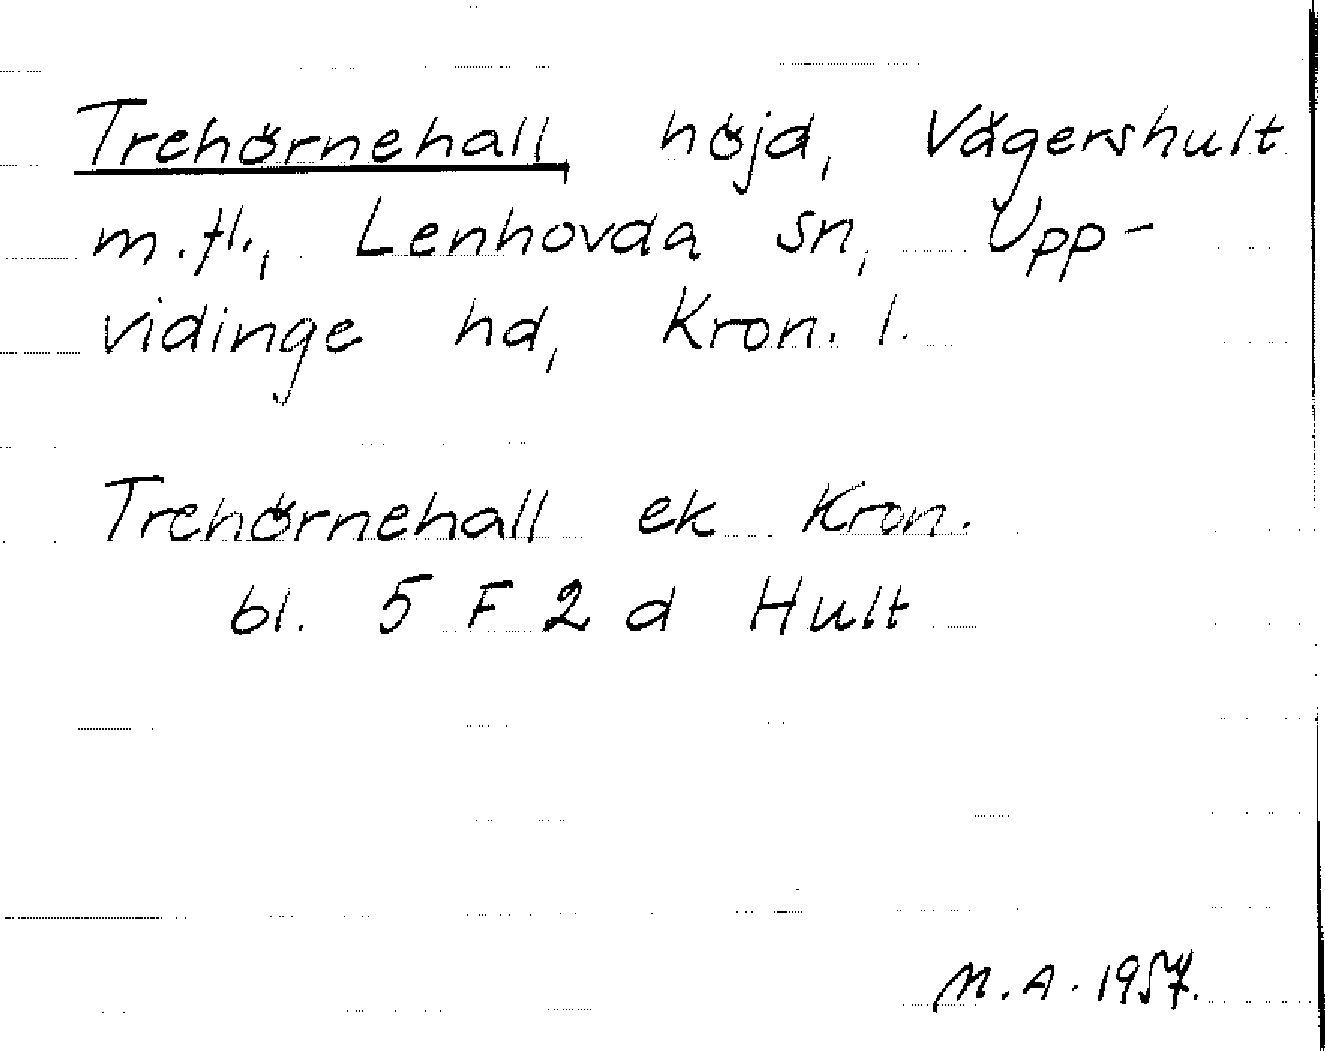 Trehörnehall, höjd, Vägershult
m.fl., Lenhovda sn, Upp-
vidinge hd, Kron. l.
Trehörnehall ek Kron.
bl. 5 F 2 d Hult
M.A. 1957.